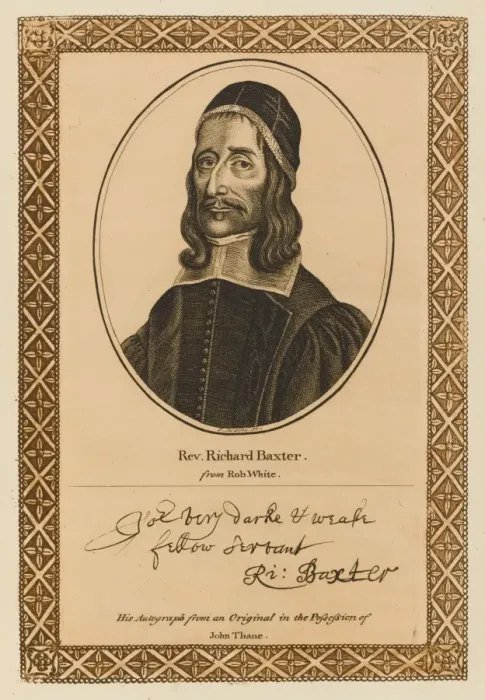 Rev. Richard Baxter.
from Rob. White.
Yor very darke & weake
fellow servant
Ri: Baxter
His Autograph from an Original in the Poſseſsion of
John Thane.